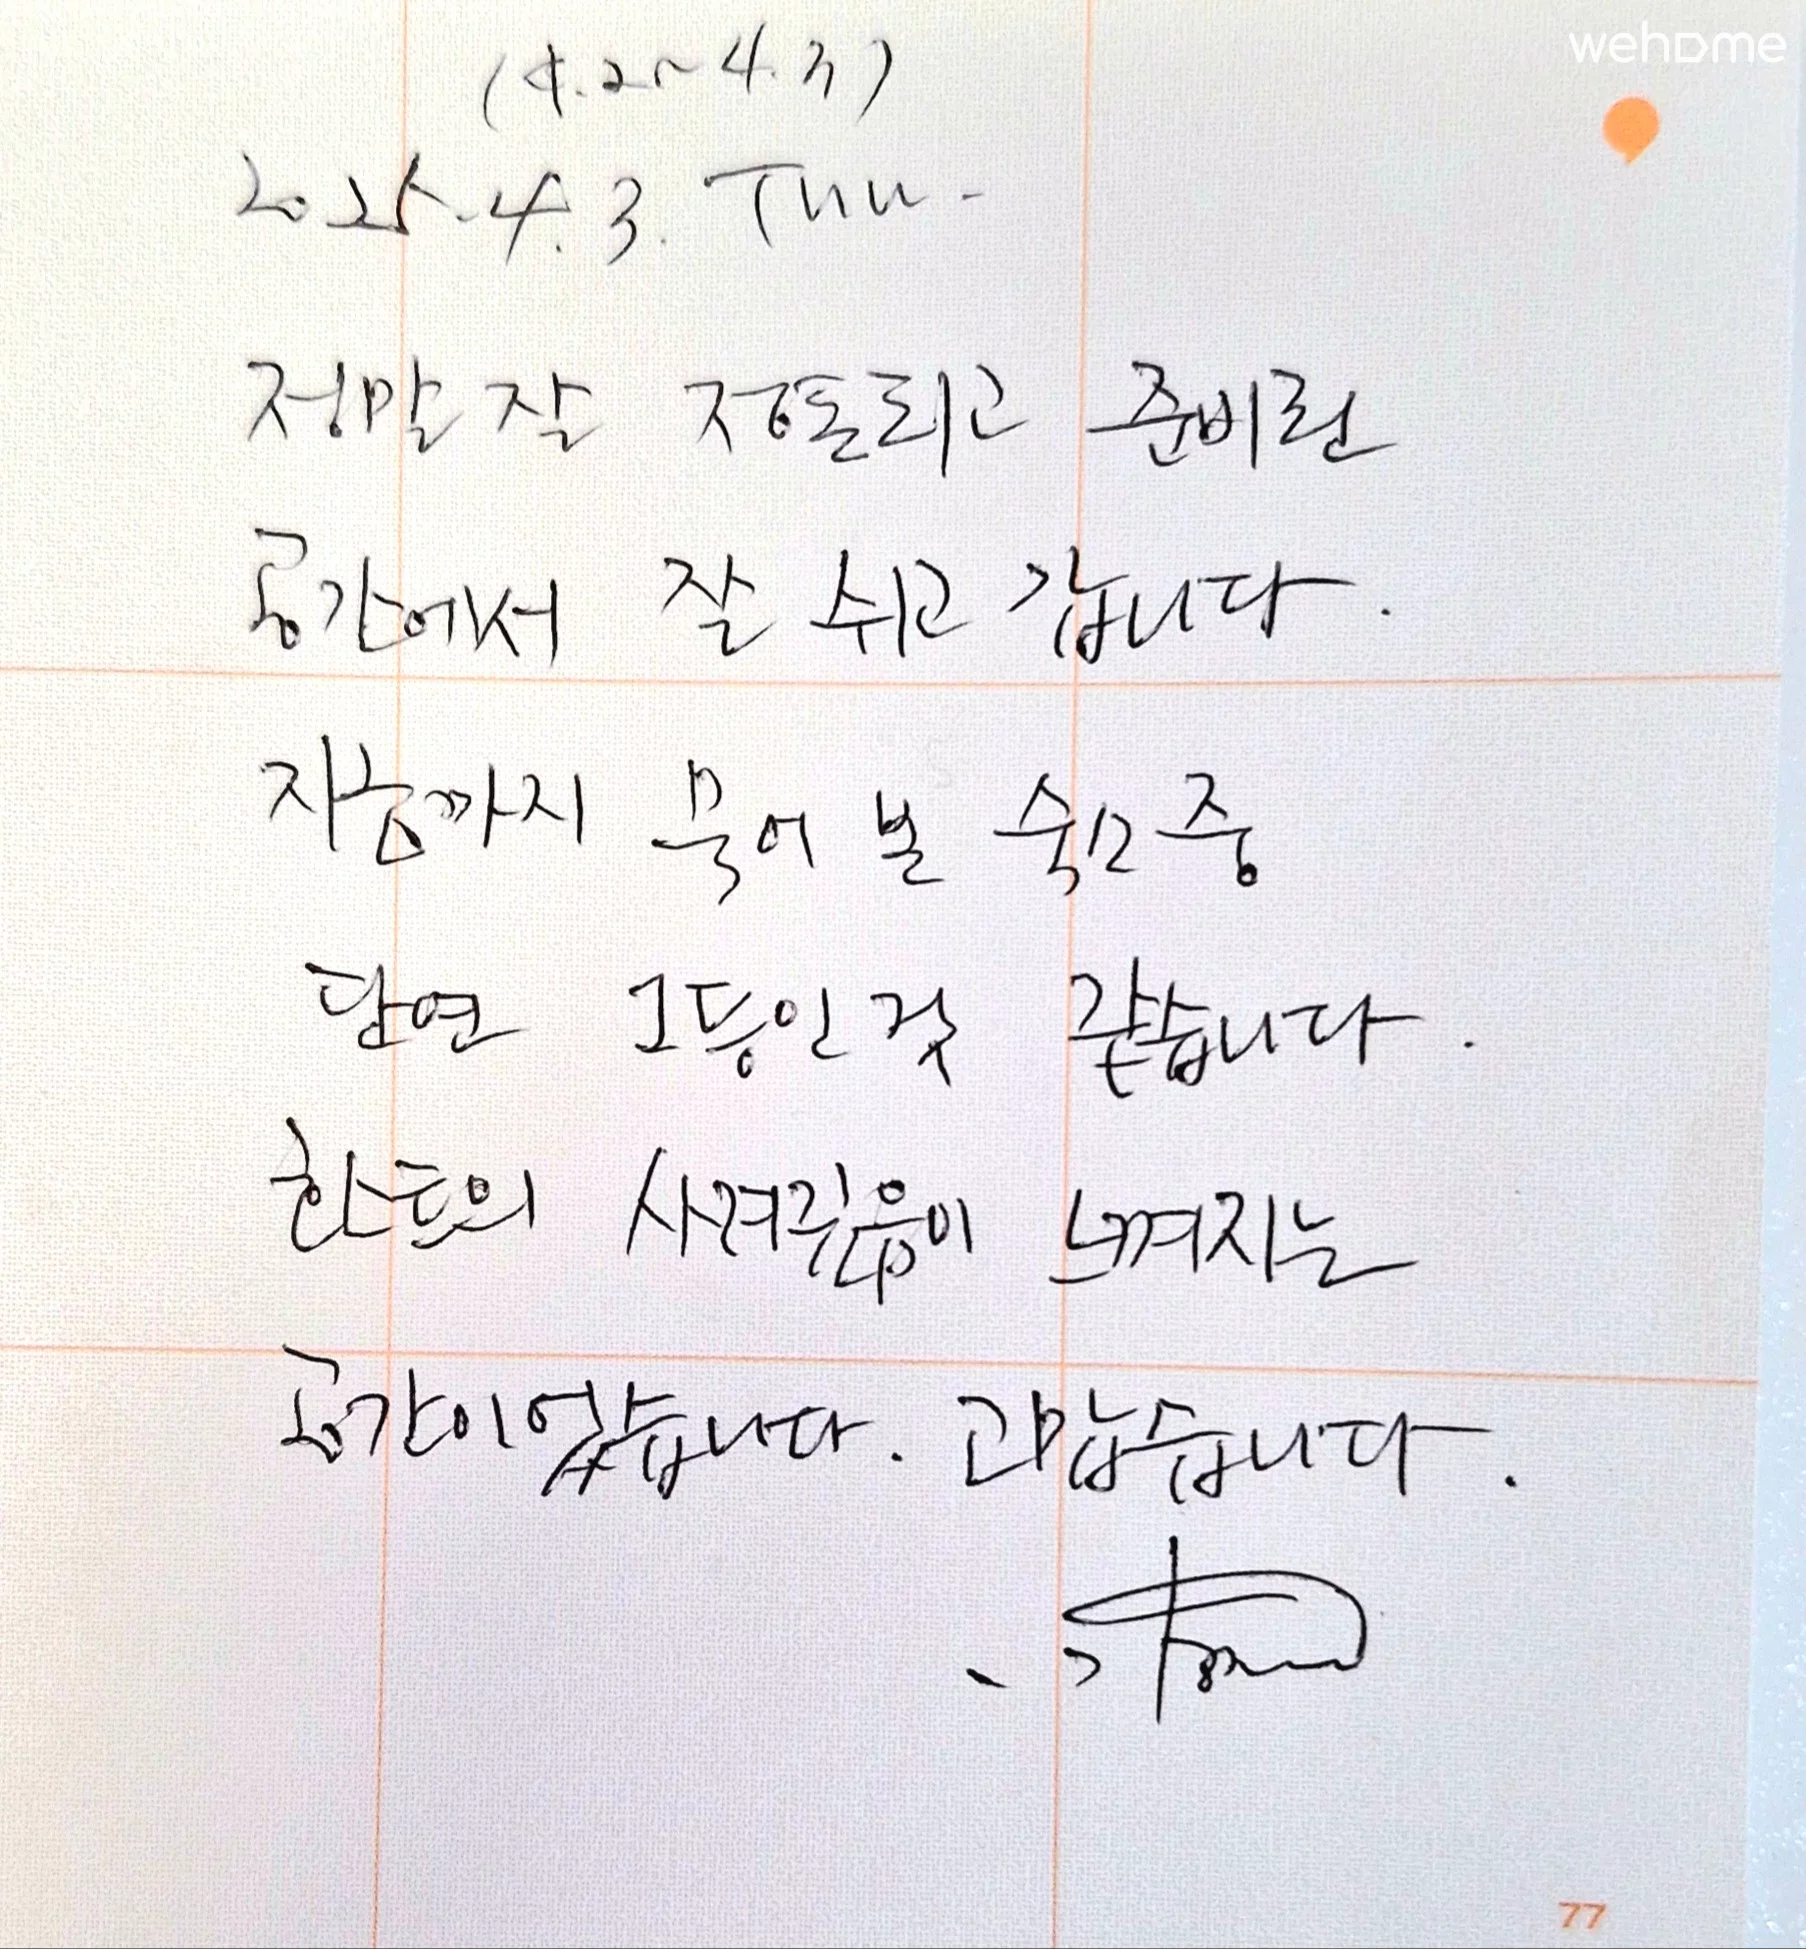 wehome
(4.2~4.3)
2025.4.3. Thu.
정말 잘 정돈되고 준비된
공간에서 잘 쉬고 갑니다.
지금까지 묵어 본 숙소중
단연 1등인 것 같습니다.
호스트의 사려깊음이 느껴지는
공간이었습니다. 고맙습니다.
77